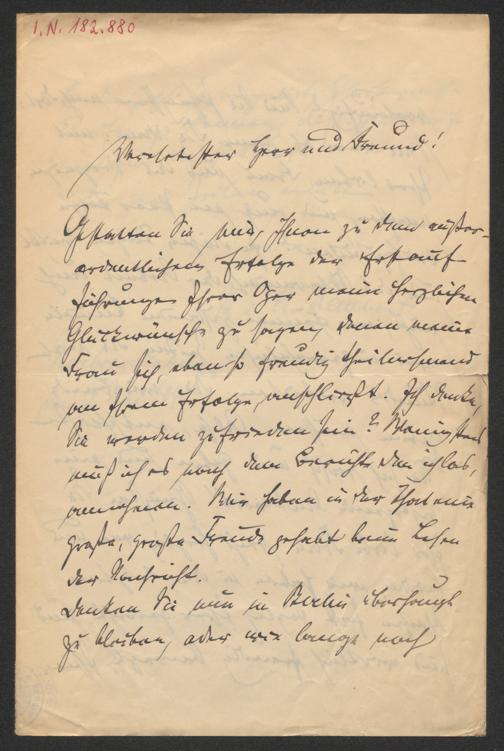 I.N. 182.880
Verehrtester Herr und Freund!
Gestatten Sie mir, Ihnen zu dem außer-
ordentlichen Erfolge der Erstauf-
führung Ihrer Oper meine herzlichen
Glückwünsche zu sagen, denen meine
Frau sich, ebenso freudig theilnehmend
an Ihrem Erfolge, anschließt. Ich denke,
Sie werden zufrieden sein? Wenigstens
muß ich es nach dem Bericht, den ich las,
annehmen. Wir haben in der That eine
große, große Freude gehabt beim Lesen
der Nachricht.
Denken Sie nun in Berlin überhaupt
zu bleiben, oder wie lange noch